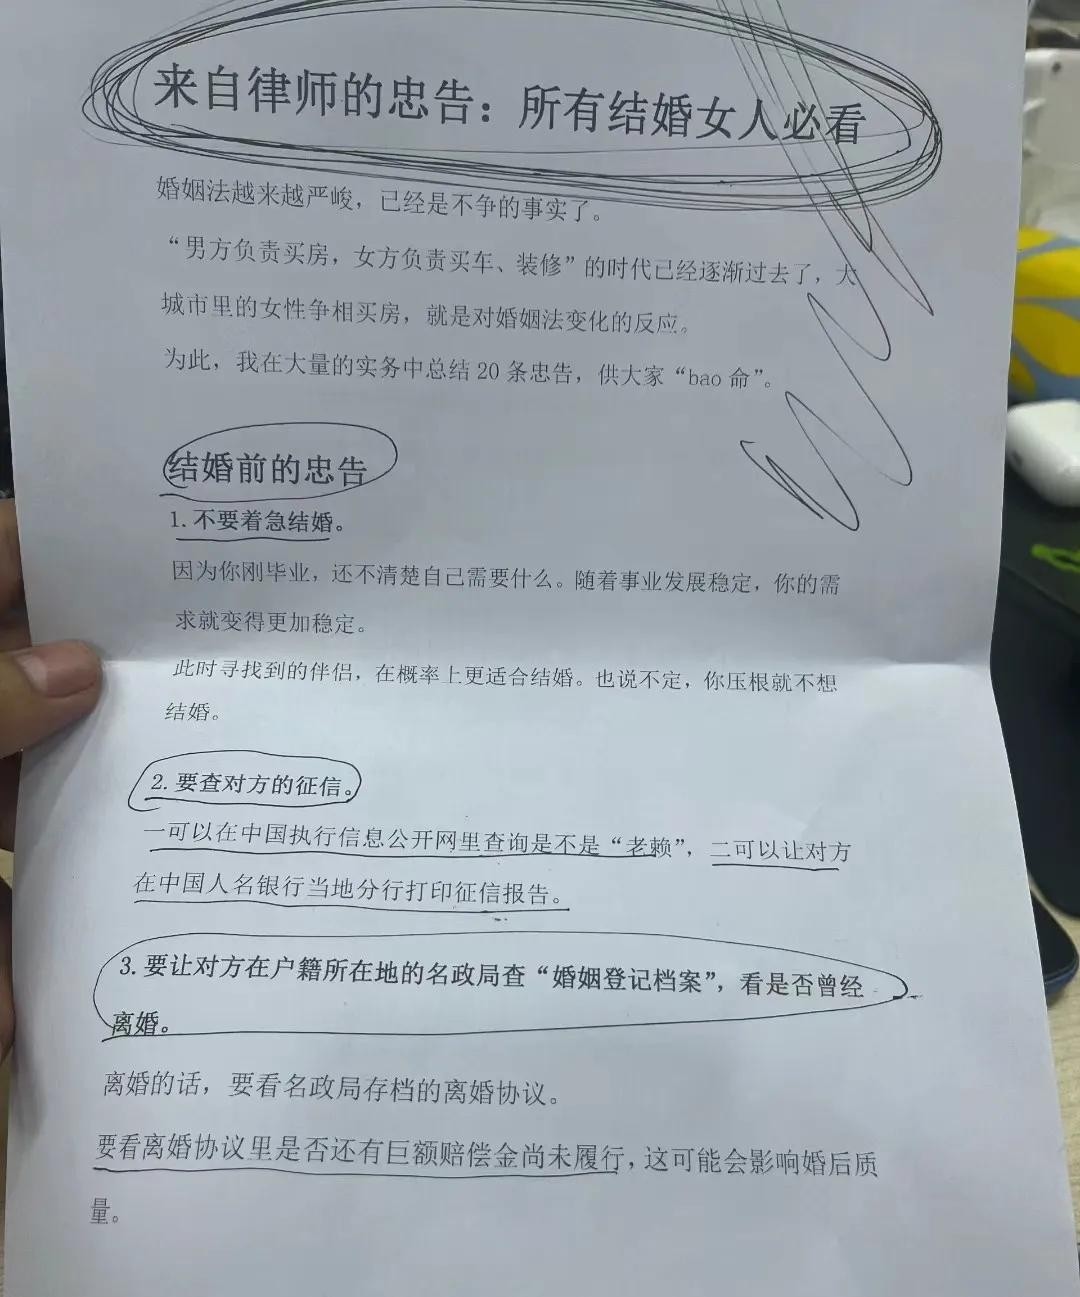 来自律师的忠告：所有结婚女人必看
婚姻法越来越严峻，已经是不争的事实了。
“男方负责买房，女方负责买车、装修”的时代已经逐渐过去了，大
城市里的女性争相买房，就是对婚姻法变化的反应。
为此，我在大量的实务中总结 20 条忠告，供大家“bao 命”。
结婚前的忠告
1. 不要着急结婚。
因为你刚毕业，还不清楚自己需要什么。随着事业发展稳定，你的需
求就变得更加稳定。
此时寻找到的伴侣，在概率上更适合结婚。也说不定，你压根就不想
结婚。
2. 要查对方的征信。
一可以在中国执行信息公开网里查询是不是“老赖”，二可以让对方
在中国人名银行当地分行打印征信报告。
3. 要让对方在户籍所在地的名政局查“婚姻登记档案”，看是否曾经
离婚。
离婚的话，要看名政局存档的离婚协议。
要看离婚协议里是否还有巨额赔偿金尚未履行，这可能会影响婚后质
量。